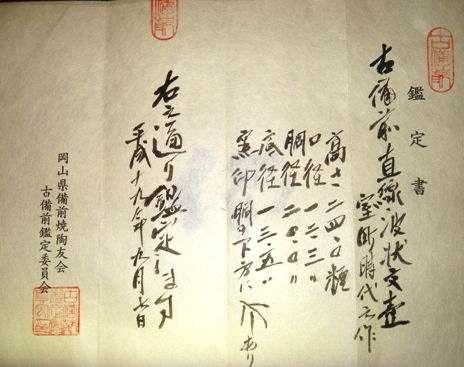 鑑定書
古備前直線波状文壺
室町時代作
高さ 二四、〇糎
口径 一二、三〃
胴径 二〇、〇〃
底径 一三、五〃
窯印胴の下方に あり
右之通り鑑定します
平成十九年九月 日
岡山県備前焼陶友会
古備前鑑定委員会
古備前